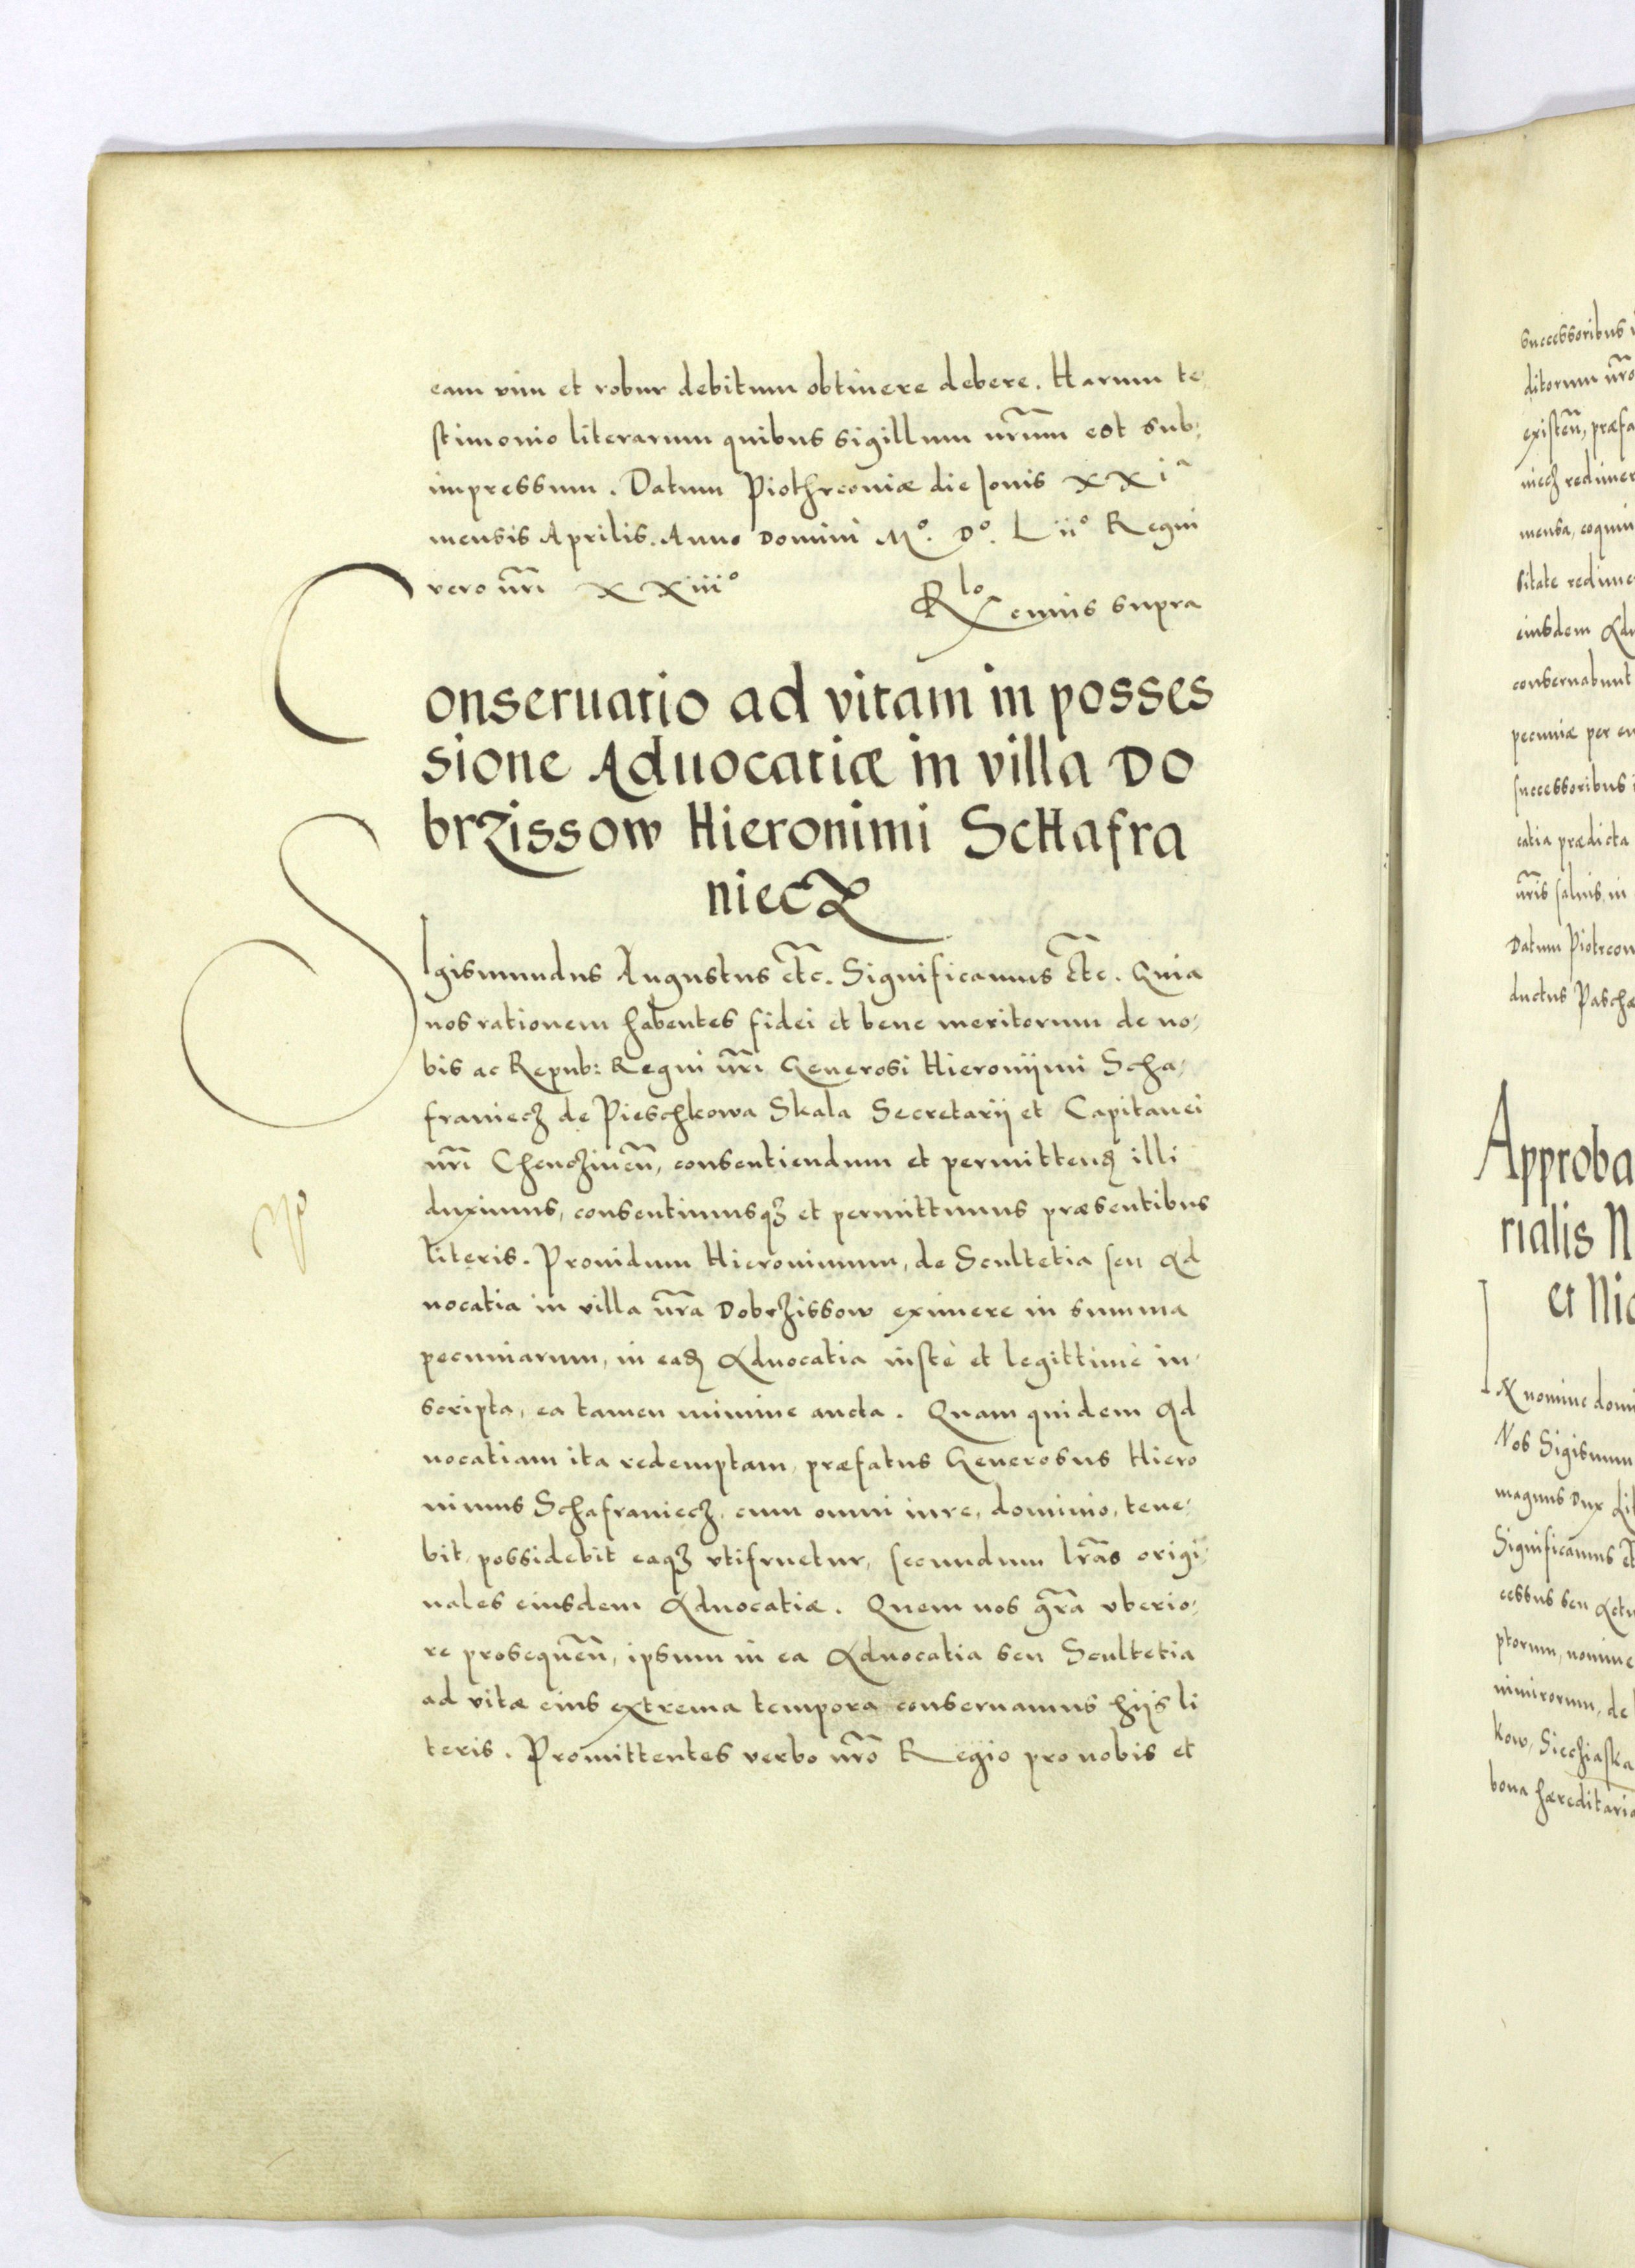 eam vim et robur debitum obtinere debere. Harum te,
stimonio literarum quibus sigillum nr̃um est sub,
impressum. Datum Piothrconiæ die Iovis XXI
mensis Aprilis. Anno Domini Mº. Dº. Liiº Regni
vero nr̃i XXiiiº
Rlo Xenius supra
Conseruatio ad vitam in posses
sione Aduocatiæ in villa Do
brzissow Hieronimi Schafra
niecz
SIgismundus Augustus etc̃. Significamus etc̃. Quia
nos rationem habentes fidei et bene meritorum de no,
bis ac Repub: Regni nr̃i Generosi Hieronijmi Scha,
franiecz de Pieschkowa Skala Secretarij et Capitanei
nr̃i Chenczineñ, consentiendum et permittenđ illi
duximus, consentimusqȝ et permittimus præsentibus
literis. Prouidum Hieronimum, de Scultetia seu Ad
uocatia in villa nr̃a Dobrzissow eximere in summa
pecuniarum, in eađ Aduocatia iustè et legittimè in,
scripta, ea tamen minime aucta. Quam quidem Ad
uocatiam ita redemptam, præfatus Generosus Hiero
nimus Schafraniecz, cum omni iure, dominio, tene,
bit, possidebit eaqȝ vtifruetur, secundum lr̃as origi,
nales eiusdem Aduocatiæ. Quem nos gr̃a vberio,
re prosequeñ, ipsum in ea Aduocatia seu Scultetia
ad vitæ eius extrema tempora conseruamus hijs li
teris. Promittentes verbo nr̃o Regio pro nobis et
successoribus
ditorum nr̃o
existeñ, præfa
niecz redimer
mensa, coquin
sitate redime
eiusdem Adu
conseruabunt
pecuniæ per eu
successoribus
catia prædicta
nr̃is saluis, in
Datum Piotrcon
ductus Pascha
Approba
rialis N
et Nic
IN nomine domi
Nos Sigismun
magnus Dux Lit
Significamus et
cessus seu Actu
ptorum, nomine
nimirorum, de
kow, Siecziaska
bona hæreditaria